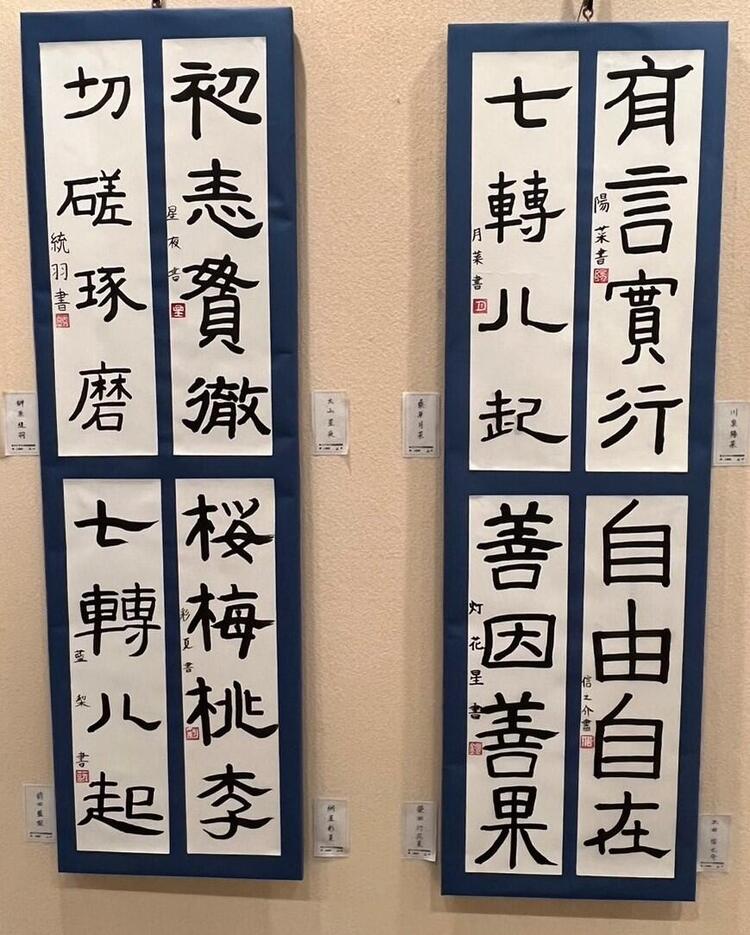 有言實行
陽菜書
七轉八起
月菜書
自由自在
信之介書
善因善果
灯花星書
初志貫徹
星夜書
切磋琢磨
統羽書
桜梅桃李
彩夏書
七轉八起
藍梨書
大山星夜